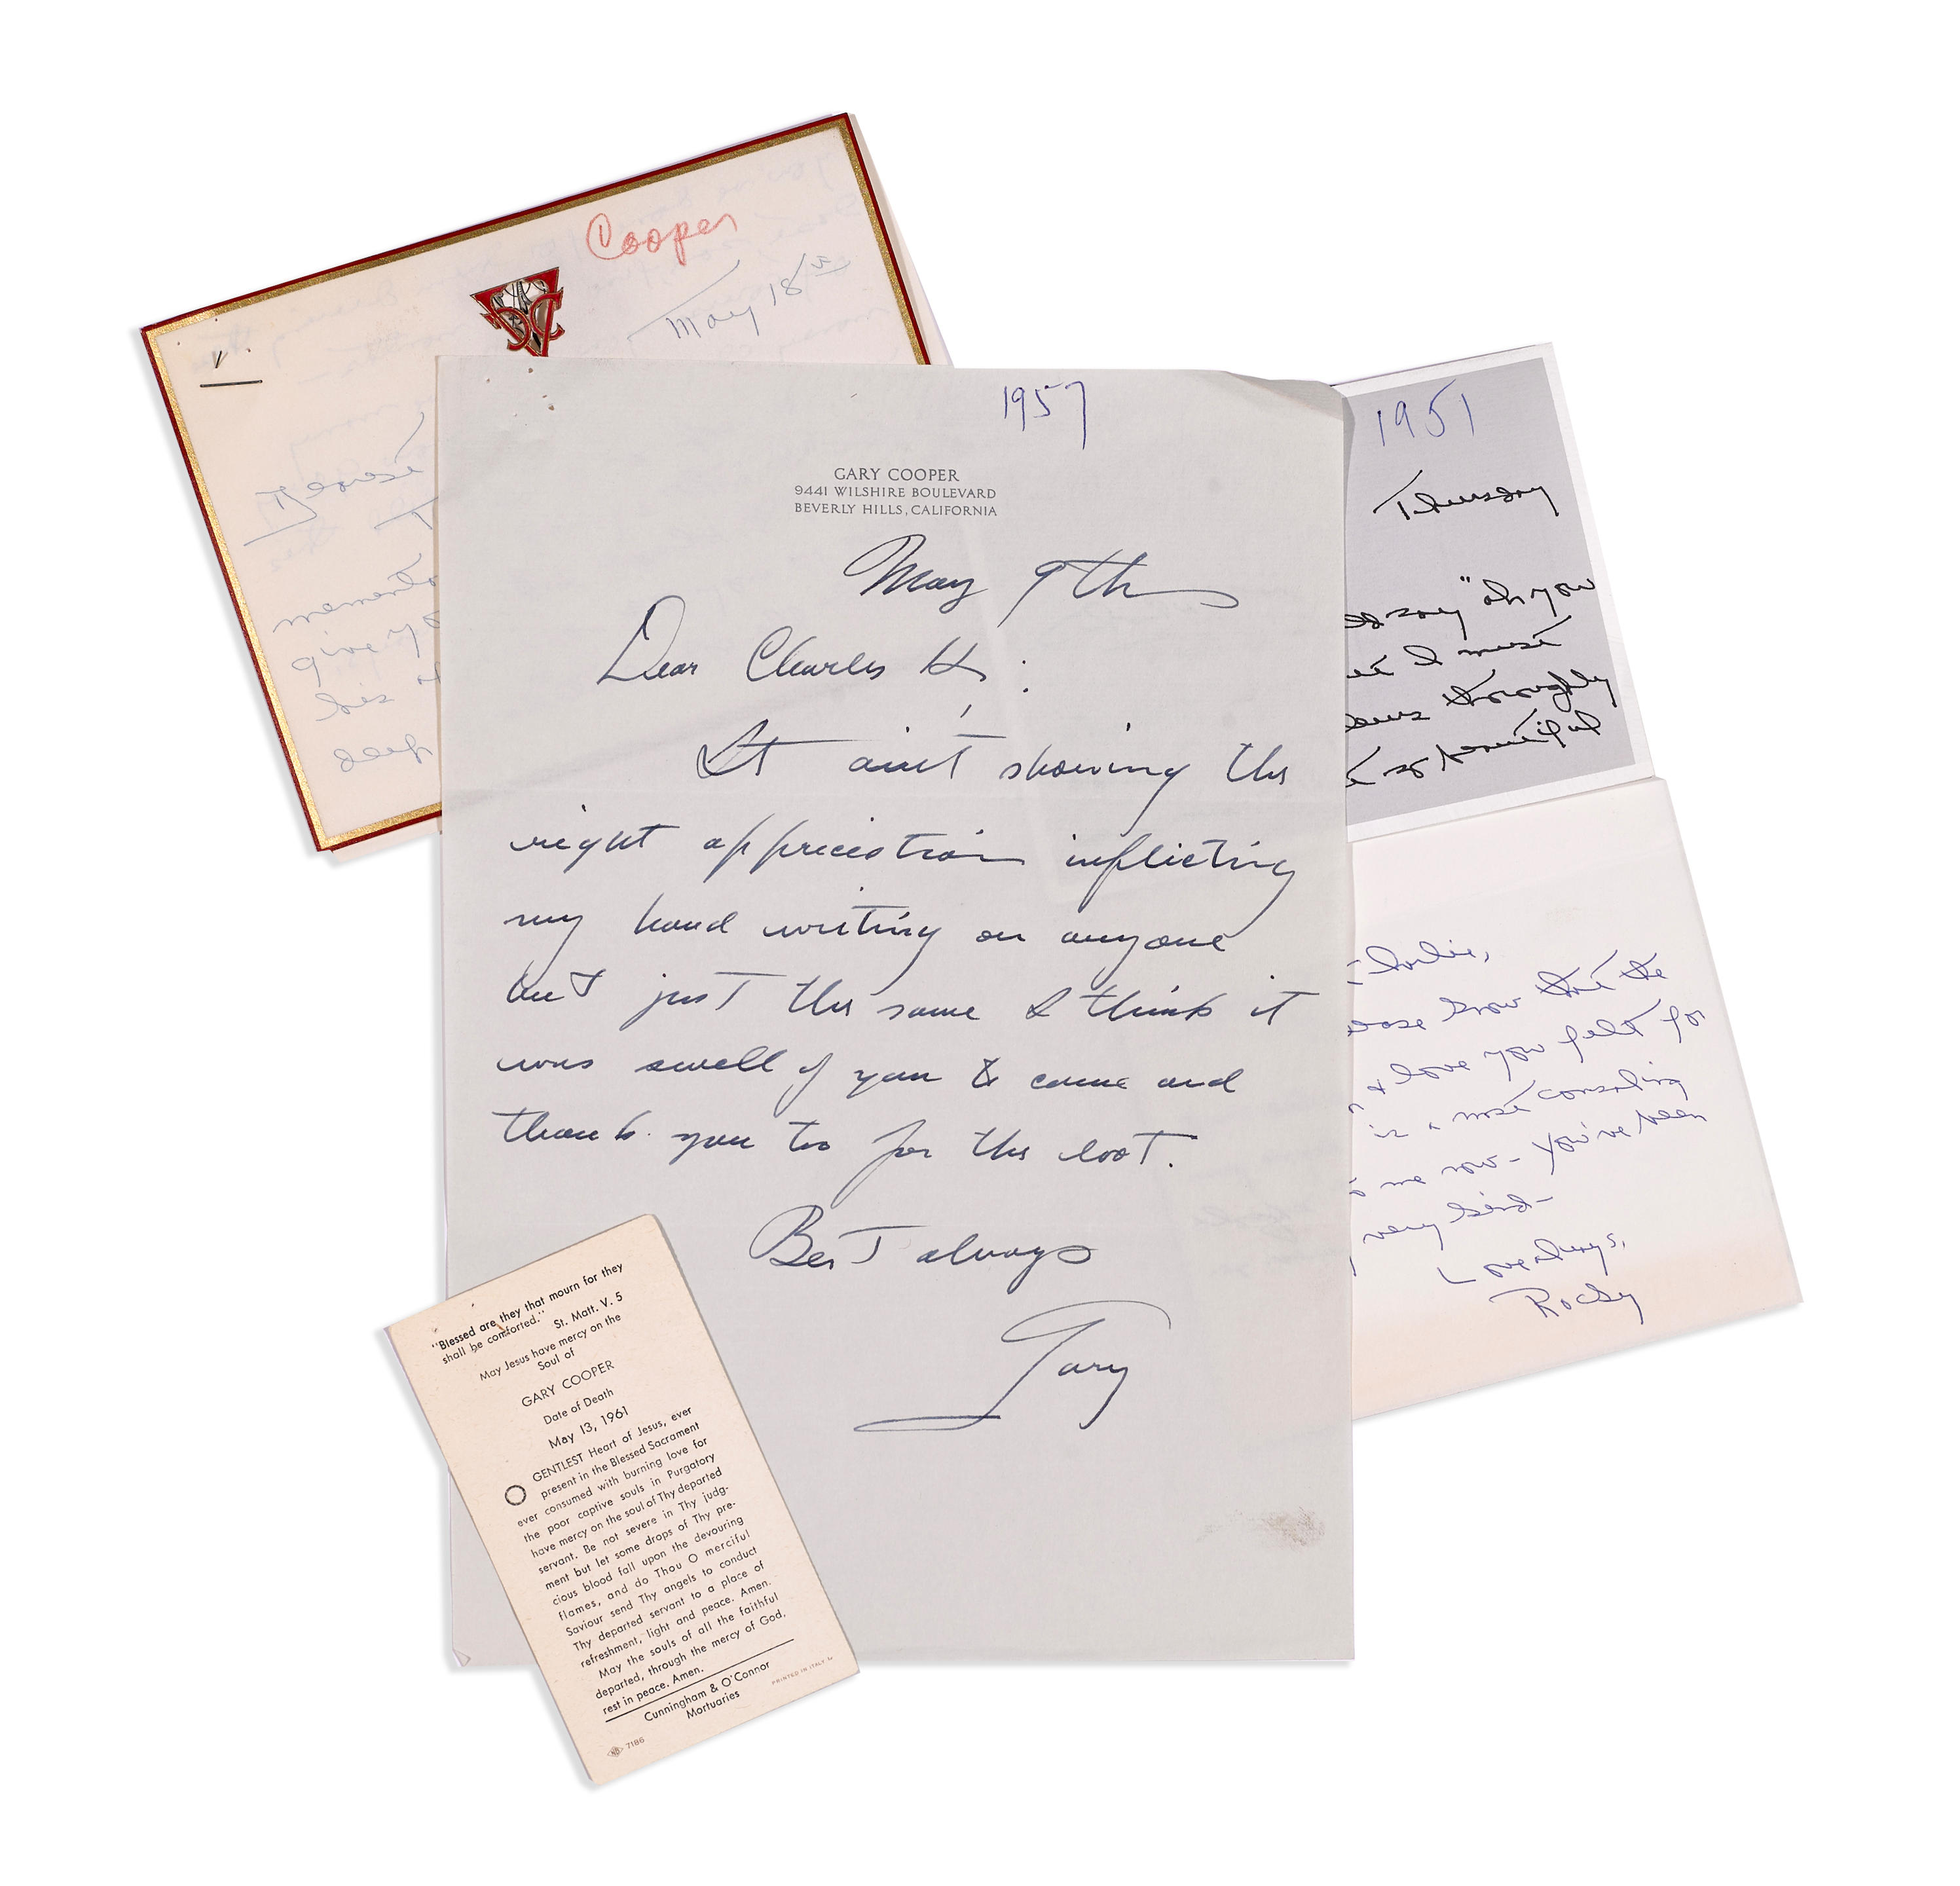 Cooper
May 18
1957
GARY COOPER
9441 WILSHIRE BOULEVARD
BEVERLY HILLS, CALIFORNIA
May 9th
Dear Charles K:
It ain't showing the
right appreciation inflicting
my hand writing on anyone
but just the same I think it
was swell of you to come and
thank you too for the loot.
Best always
Gary
1951
Thursday
say "oh you
I must
thoroughly
so beautiful
Charlie,
know that the
& love you felt for
is a most consoling
me now - You've been
very kind -
Love always,
Rocky
"Blessed are they that mourn for they
shall be comforted." St. Matt. V. 5
May Jesus have mercy on the
Soul of
GARY COOPER
Date of Death
May 13, 1961
O GENTLEST Heart of Jesus, ever
present in the Blessed Sacrament
ever consumed with burning love for
the poor captive souls in Purgatory
have mercy on the soul of Thy departed
servant. Be not severe in Thy judg-
ment but let some drops of Thy pre-
cious blood fall upon the devouring
flames, and do Thou O merciful
Saviour send Thy angels to conduct
Thy departed servant to a place of
refreshment, light and peace. Amen.
May the souls of all the faithful
departed, through the mercy of God,
rest in peace. Amen.
Cunningham & O'Connor
Mortuaries
PRINTED IN ITALY
7186